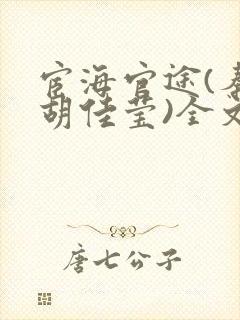 宦海官途(
胡佳莹)全文
唐七公子